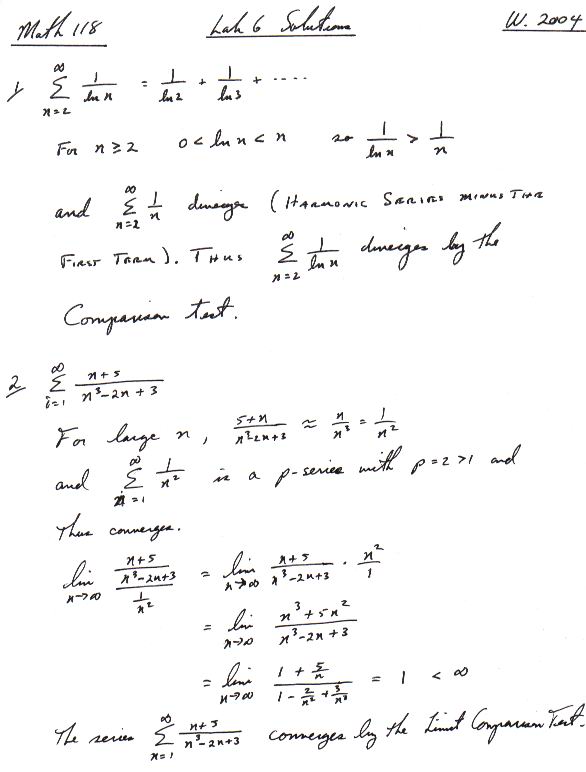 Math 118 Lab 6 Solutions W. 2004
1/ ∑_{n=2}^{∞} 1/ln n = 1/ln 2 + 1/ln 3 + ....
For n ≥ 2 0 < ln n < n so 1/ln n > 1/n
and ∑_{n=2}^{∞} 1/n diverges (HARMONIC SERIES MINUS THE
FIRST TERM). THUS ∑_{n=2}^{∞} 1/ln n diverges by the
Comparison test.
2/ ∑_{i=1}^{∞} (n+5)/(n³-2n+3)
For large n, (5+n)/(n³-2n+3) ≈ n/n³ = 1/n²
and ∑_{n=1}^{∞} 1/n² is a p-series with p=2>1 and
Thus converges.
lim_{n→∞} ((n+5)/(n³-2n+3))/(1/n²) = lim_{n→∞} (n+5)/(n³-2n+3) · n²/1
= lim_{n→∞} (n³+5n²)/(n³-2n+3)
= lim_{n→∞} (1+5/n)/(1-2/n²+3/n³) = 1 < ∞
The series ∑_{n=1}^{∞} (n+5)/(n³-2n+3) converges by the Limit Comparison Test.